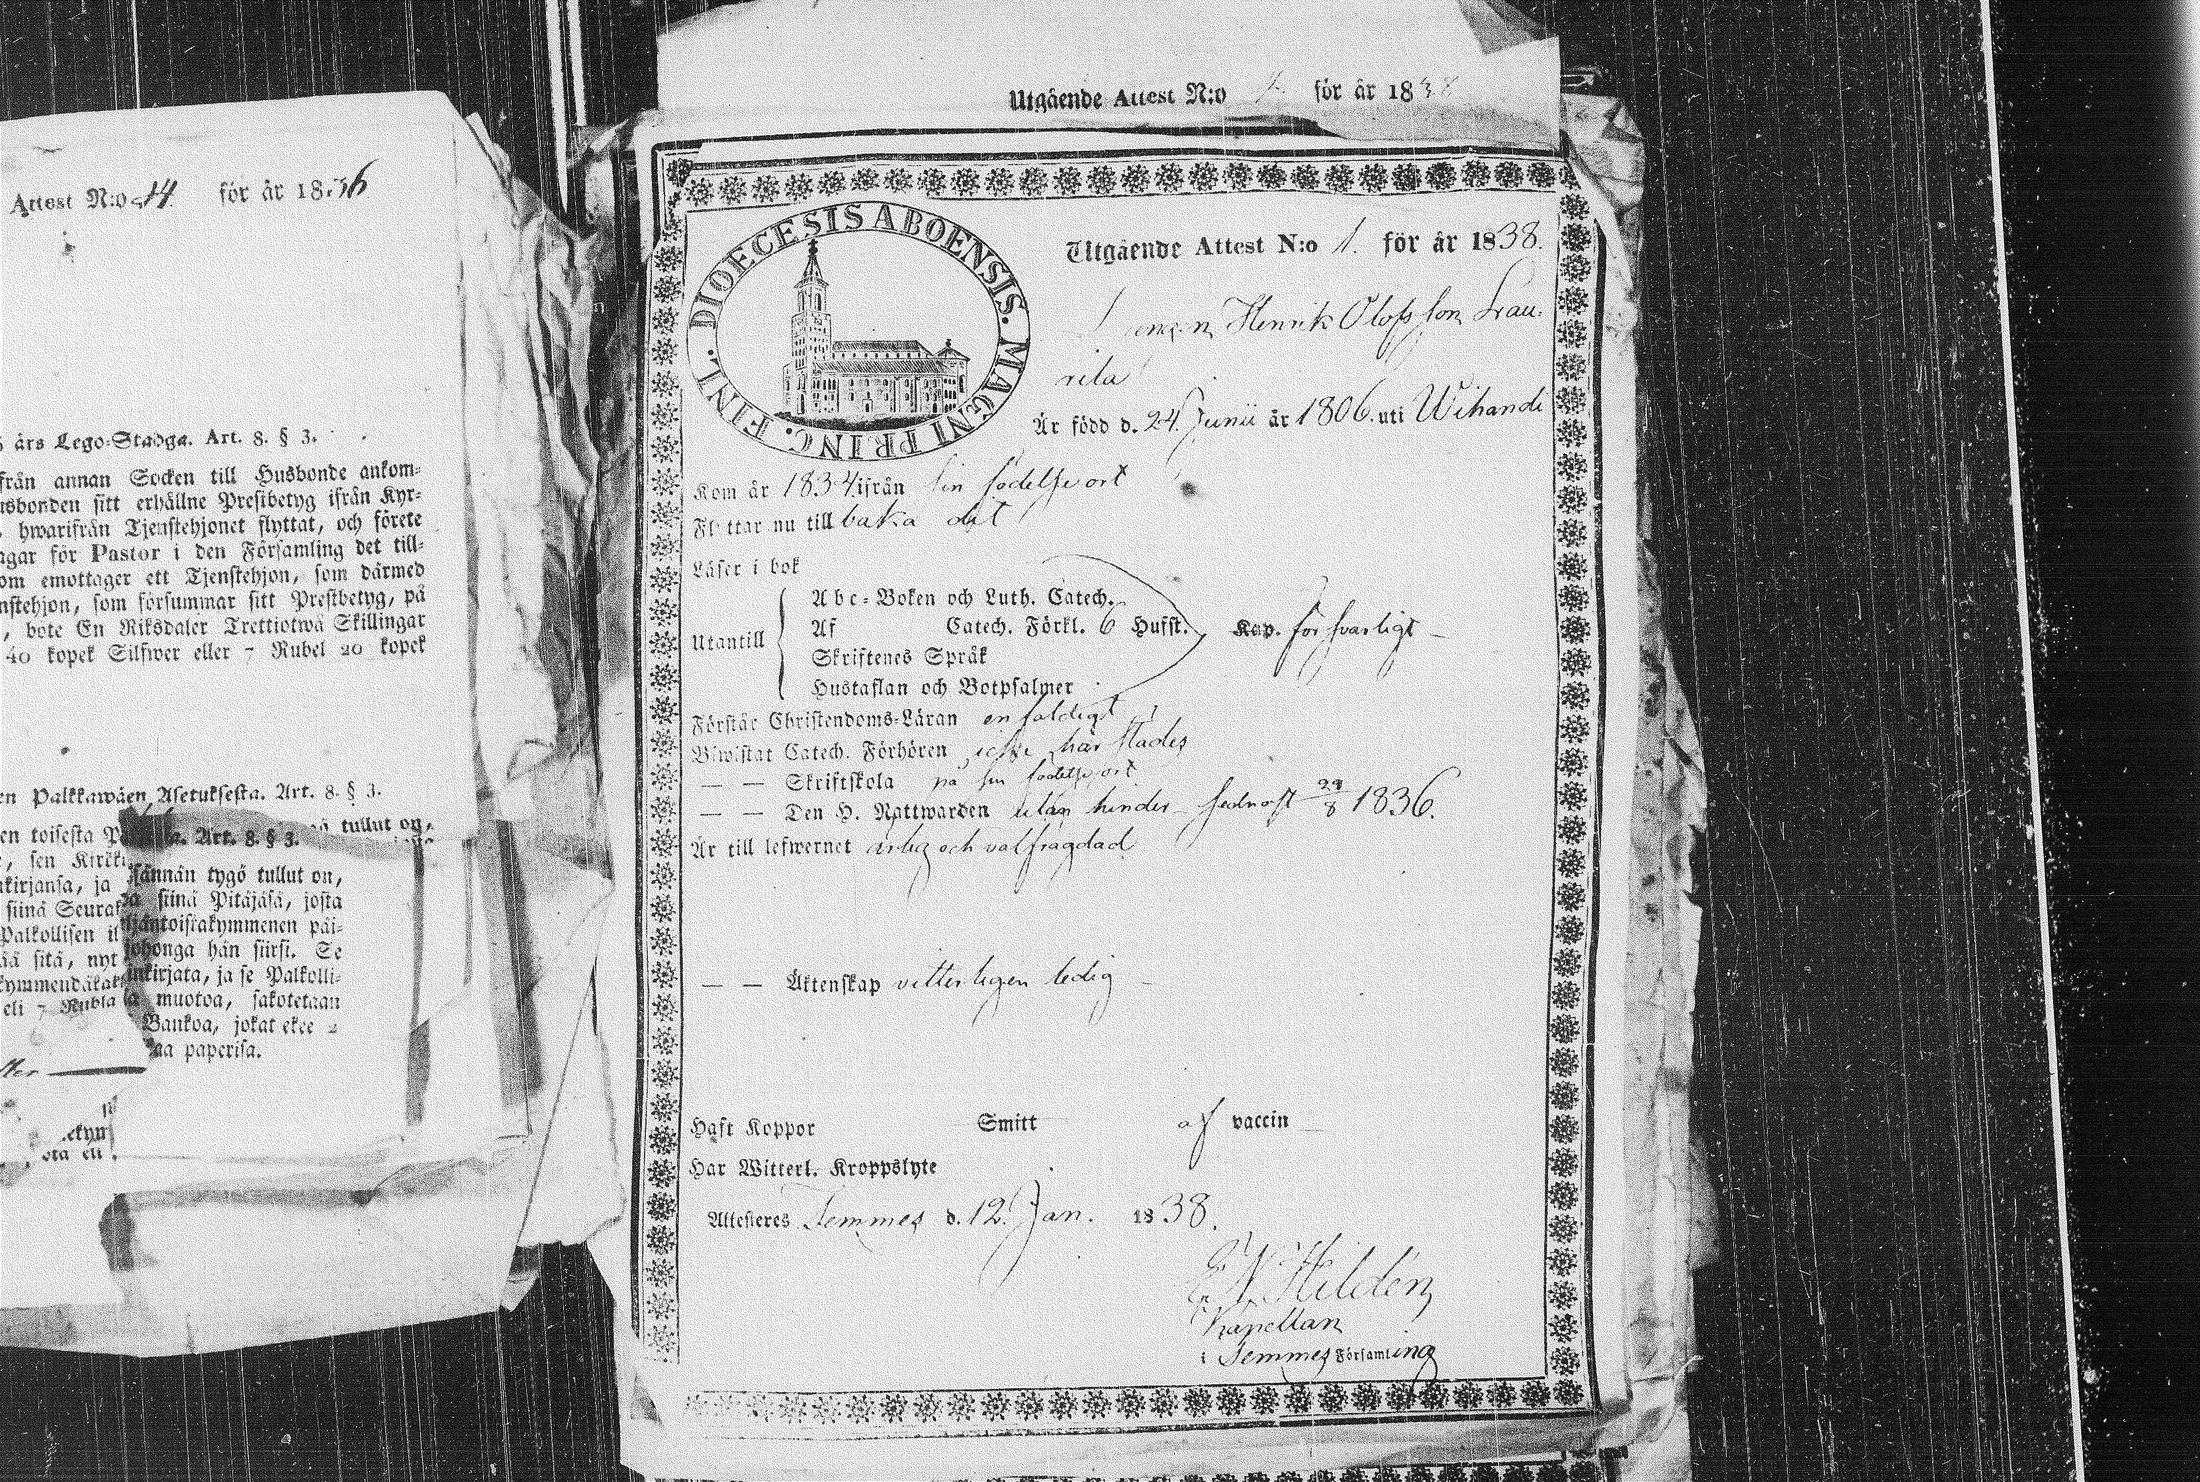 Attest N:o 14 för år 1836
6 års Lego-Stadga. Art. 8. § 3.
från annan Socken till Husbonde ankom-
usbonden sitt erhållne Prestbetyg ifrån Kyr-
, hwarifrån Tjenstehjonet flyttat, och förete
agar för Pastor i den Församling det till-
om emottager ett Tjenstehjon, som därmed
nstehjon, som försummar sitt Prestbetyg, på
, böte En Riksdaler Trettiotwå Skillingar
40 kopek Silfwer eller 7 Rubel 20 kopek
en Palkkawäen Asetuksesta. Art. 8. § 3.
en toisesta
tullut on,
a. Art. 8. § 3.
, sen
nkirjansa, ja
siinä Seurak
Palkollisen
ää sitä, nyt
kymmendäkah
eli 7 Rubla
sännän tygö tullut on,
siinä Pitäjäsä, josta
ljäntoistakymmenen päi-
johonga hän siirsi. Se
inkirjata, ja se Palkolli-
muotoa, sakotetaan
Bankoa, jokat ekee 2
paperisa.
Utgående Attest N:o 2. för år 1838
DIOECESIS ABOENSIS. MAGNI PRINC. FINL.
Utgående Attest N:o 1. för år 1838.
Henrik Olofsson Lau-
rila
Är född d. 24. Junii år 1806. uti Wihandi
Kom år 1834 ifrån sin födelseort
Flyttar nu till baka dit
Läser i bok
Abc-Boken och Luth. Catech.
Utantill Af Catech. Förkl. 6 Hufst. Kap. försvarligt
Skriftenes Språk
Hustaflan och Botpsalmer
Förstår Christendoms-Läran enfaldigt
Biwistat Catech. Förhören icke härstädes
— — Skriftskola på sin födelseort
— — Den H. Nattwarden utan hinder sednast 28/8 1836.
Är till lefwernet ärlig och välfrägdad
— — Äktenskap vitterligen ledig
Haft Koppor Smitt af vaccin
Har Witterl. Kroppslyte
Attesteres Temmes d. 12. Jan. 1838.
Hildén
Kapellan
i Temmes Församling